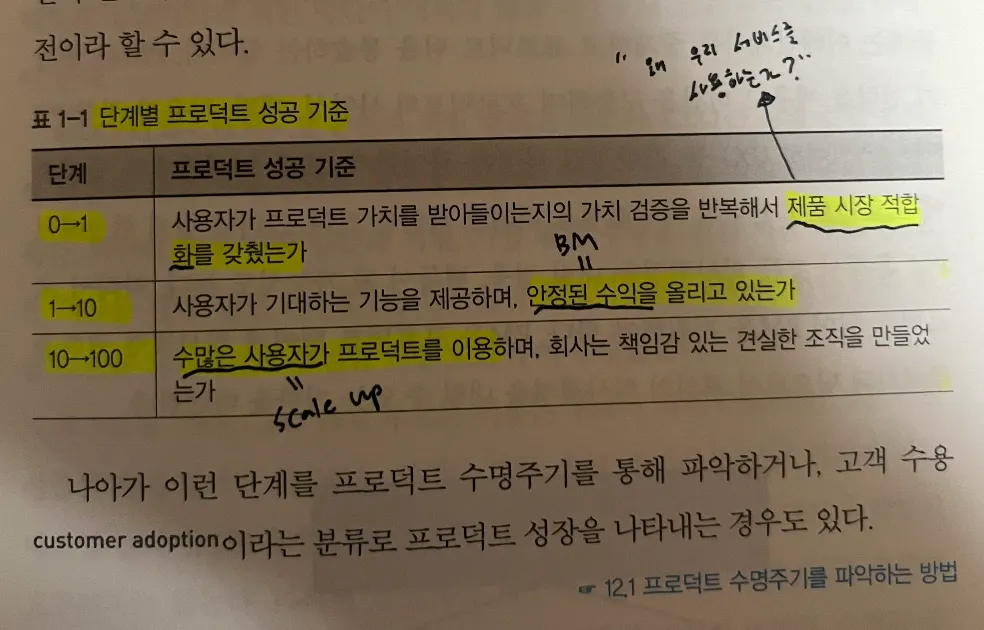 전이라 할 수 있다.
" 왜 우리 서비스를
사용하는가? "
표 1-1 단계별 프로덕트 성공 기준
단계 프로덕트 성공 기준
0→1 사용자가 프로덕트 가치를 받아들이는지의 가치 검증을 반복해서 제품 시장 적합
화를 갖췄는가
BM
1→10 사용자가 기대하는 기능을 제공하며, 안정된 수익을 올리고 있는가
10→100 수많은 사용자가 프로덕트를 이용하며, 회사는 책임감 있는 견실한 조직을 만들었
는가
scale up
나아가 이런 단계를 프로덕트 수명주기를 통해 파악하거나, 고객 수용
customer adoption이라는 분류로 프로덕트 성장을 나타내는 경우도 있다.
☞ 12.1 프로덕트 수명주기를 파악하는 방법